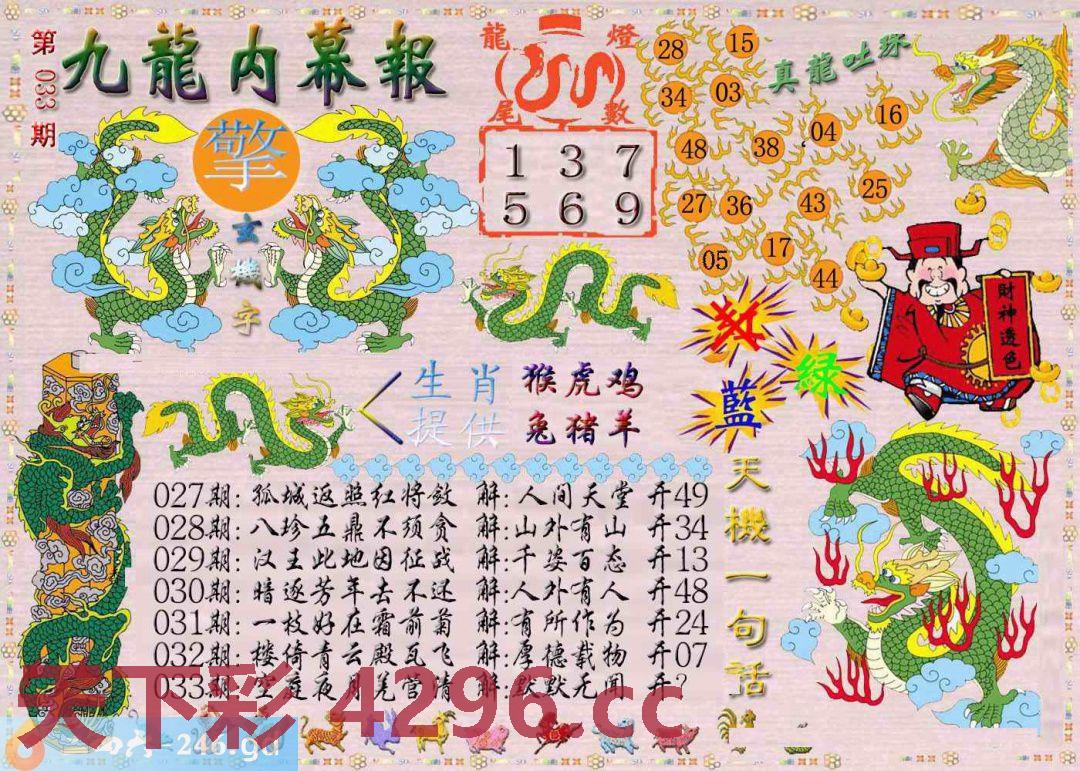 第033期
九龍内幕報
擎
玄機字
龍燈
尾數
1 3 7
5 6 9
真龍吐珠
28 15
34 03
48 38 04 16
27 36 43 25
05 17 44
財神送色
红
绿
藍
生肖 猴虎鸡
提供 兔猪羊
天機一句話
027期:孤城返照红将敛 解:人间天堂 开49
028期:八珍五鼎不须贪 解:山外有山 开34
029期:汉王此地因征战 解:千姿百态 开13
030期:暗逐芳年去不还 解:人外有人 开48
031期:一枝好在霜前菊 解:有所作为 开24
032期:楼倚青云殿瓦飞 解:厚德载物 开07
033期:空庭夜月 解:默默无闻 开?
天下彩 4296.cc
=246.gd